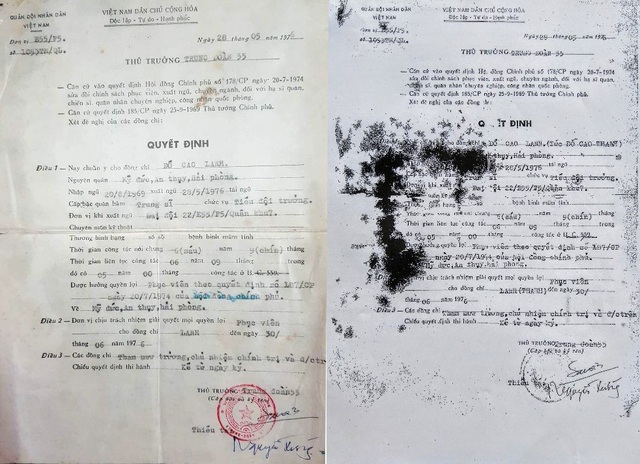 QUÂN ĐỘI NHÂN DÂN
VIỆT NAM
Đơn vị E55/F5.
số 1053TR/QL.
VIỆT NAM DÂN CHỦ CỘNG HÒA
Độc lập - Tự do - Hạnh phúc
Ngày 28 tháng 05 năm 1976
THỦ TRƯỞNG TRUNG ĐOÀN 55
— Căn cứ vào quyết định Hội đồng Chính phủ số 178/CP ngày 20-7-1974
sửa đổi chính sách phục viên, xuất ngũ, chuyển ngành, đối với hạ sĩ quan,
chiến sĩ, quân nhân chuyên nghiệp, công nhân quốc phòng.
— Căn cứ quyết định 185/CP ngày 25-9-1969 Thủ tướng Chính phủ.
Xét đề nghị của các đồng chí:
QUYẾT ĐỊNH
Điều 1 — Nay chuẩn y cho đồng chí ĐỖ CAO LANH.
Nguyên quán Mỹ đức, An thụy, Hải phòng.
Nhập ngũ 20/8/1969 xuất ngũ 20/5/1976 tái ngũ
Cấp bậc quân hàm Trung sĩ chức vụ Tiểu đội trưởng.
Đơn vị khi xuất ngũ Đại đội 22/E55/F5/Quân khu7.
Chuyên môn kỹ thuật
Thương binh hạng số bệnh binh mãn tính
Thời gian công tác nói chung 6(sáu) năm 9(chín) tháng
Thời gian liên tục công tác 06 năm 09 tháng
đó có 05 năm 00 tháng công tác ở B.C.
Được hưởng quyền lợi Phục viên theo quyết định số 187/CP
ngày 20/7/1974 của chính phủ.
Về Mỹ đức, An thụy, hải phòng.
Điều 2 — Đơn vị chịu trách nhiệm giải quyết mọi quyền lợi Phục viên
cho đồng chí LANH đến ngày 30/
tháng 06 năm 1976
Điều 3 — Các đồng chí Tham mưu trưởng, chủ nhiệm chính trị và
Chiểu quyết định thi hành Kể từ ngày ký.
THỦ TRƯỞNG Trung đoàn55
(Cấp bậc và ký tên)
Thiếu tá
Nguyễn
QUÂN ĐỘI NHÂN DÂN
VIỆT NAM
Đơn vị E55/F5.
số 1053TR/QL.
VIỆT NAM DÂN CHỦ CỘNG HÒA
Độc lập - Tự do - Hạnh phúc
Ngày 28 tháng 05 năm 1976
THỦ TRƯỞNG TRUNG ĐOÀN 55
— Căn cứ vào quyết định Hội đồng Chính phủ số 178/CP ngày 20-7-1974
sửa đổi chính sách phục viên, xuất ngũ, chuyển ngành, đối với hạ sĩ quan,
chiến sĩ, quân nhân chuyên nghiệp, công nhân quốc phòng.
— Căn cứ quyết định 185/CP ngày 25-9-1969 Thủ tướng Chính phủ.
Xét đề nghị của các đồng chí:
ĐỊNH
ĐỖ CAO LANH.(Tức ĐỖ CAO THANH)
thụy, Hải phòng.
20/5/1976 tái ngũ
chức vụ Tiểu đội trưởng.
Đại đội 22/E55/F5/Quân khu7.
Thời gian 6(sáu) năm 9(chín) tháng
Thời gian 06 năm 09 tháng
05 năm 00 tháng công tác ở
Phục viên theo quyết định số 187/CP
ngày 20/7/1974 của hội đồng chính phủ.
Mỹ đức, An thụy, hải phòng.
chịu trách nhiệm giải quyết mọi quyền lợi Phục viên
đồng chí LANH(THANH) đến ngày 30/
tháng 06 năm 1976
Điều 3 Các đồng chí Tham mưu trưởng, chủ nhiệm chính trị và
Chiểu quyết định thi hành Kể từ ngày ký.
THỦ TRƯỞNG Trung đoàn55
(Cấp bậc và ký tên)
Thiếu tá
Nguyễn